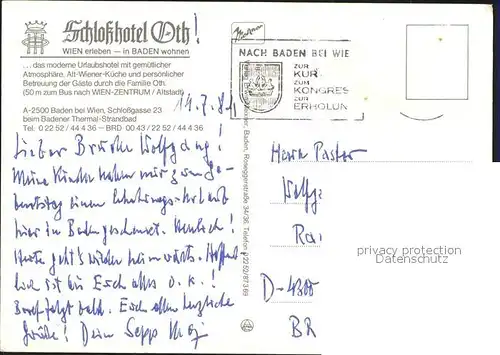 Schloßhotel Oth!
WIEN erleben — in BADEN wohnen
... das moderne Urlaubshotel mit gemütlicher
Atmosphäre, Alt-Wiener-Küche und persönlicher
Betreuung der Gäste durch die Familie Oth.
(50 m zum Bus nach WIEN-ZENTRUM / Altstadt)
A-2500 Baden bei Wien, Schloßgasse 23
beim Badener Thermal-Strandbad
Tel. 0 22 52 / 44 4 36 – BRD 00 43 / 22 52 / 44 4 36
NACH BADEN BEI WIE
ZUR
KUR
ZUM
KONGRES
ZUR
ERHOLUN
14.7.84
Lieber Bruder Wolfgang!
Meine Kinder haben mir zum Ge-
burtstag einen Erholungs-Urlaub
hier in Baden geschenkt. Herrlich!
Heute geht's wieder heimwärts. Hoffent
lich ist bei Euch alles o.k.!
Brief folgt bald. Euch allen herzliche
Grüße! Dein Sepp
Baden, Roseggerstraße 34/36, Telefon 0 22 52/87 3 69
Herrn Pastor
Wolfg
Rai
D-4300
BR
privacy protection
Datenschutz